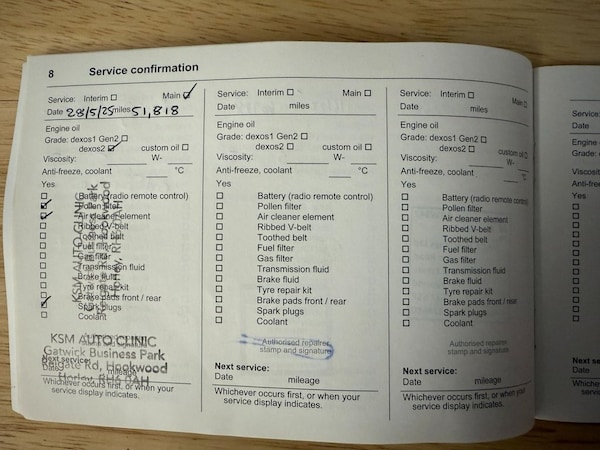 8 Service confirmation
Service: Interim ☐ Main ☑
Date 28/5/25 miles 51,818
Engine oil
Grade: dexos1 Gen2 ☐
dexos2 ☑ custom oil ☐
Viscosity: __ W- __
Anti-freeze, coolant __ °C
Yes
☐ Battery (radio remote control)
☑ Pollen filter
☑ Air cleaner element
☐ Ribbed V-belt
☐ Toothed belt
☐ Fuel filter
☐ Gas filter
☐ Transmission fluid
☐ Brake fluid
☐ Tyre repair kit
☐ Brake pads front / rear
☑ Spark plugs
☐ Coolant
KSM AUTO CLINIC
Gatwick Business Park
Hookwood
Horley, RH6 0AH
Authorised repairer,
stamp and signature
KSM AUTO CLINIC
Gatwick Business Park
Reigate Rd, Hookwood
Horley, RH6 0AH
Next service:
Date mileage
Whichever occurs first, or when your
service display indicates.
Service: Interim ☐ Main ☐
Date miles
Engine oil
Grade: dexos1 Gen2 ☐
dexos2 ☐ custom oil ☐
Viscosity: __ W- __
Anti-freeze, coolant __ °C
Yes
☐ Battery (radio remote control)
☐ Pollen filter
☐ Air cleaner element
☐ Ribbed V-belt
☐ Toothed belt
☐ Fuel filter
☐ Gas filter
☐ Transmission fluid
☐ Brake fluid
☐ Tyre repair kit
☐ Brake pads front / rear
☐ Spark plugs
☐ Coolant
Authorised repairer,
stamp and signature
Next service:
Date mileage
Whichever occurs first, or when your
service display indicates.
Service: Interim ☐ Main ☐
Date miles
Engine oil
Grade: dexos1 Gen2 ☐
dexos2 ☐ custom oil ☐
Viscosity: __ W- __
Anti-freeze, coolant __ °C
Yes
☐ Battery (radio remote control)
☐ Pollen filter
☐ Air cleaner element
☐ Ribbed V-belt
☐ Toothed belt
☐ Fuel filter
☐ Gas filter
☐ Transmission fluid
☐ Brake fluid
☐ Tyre repair kit
☐ Brake pads front / rear
☐ Spark plugs
☐ Coolant
Authorised repairer,
stamp and signature
Next service:
Date mileage
Whichever occurs first, or when your
service display indicates.
Service:
Date
Engine
Grade:
Viscosity
Anti-fre
Yes
Next
Date
Which